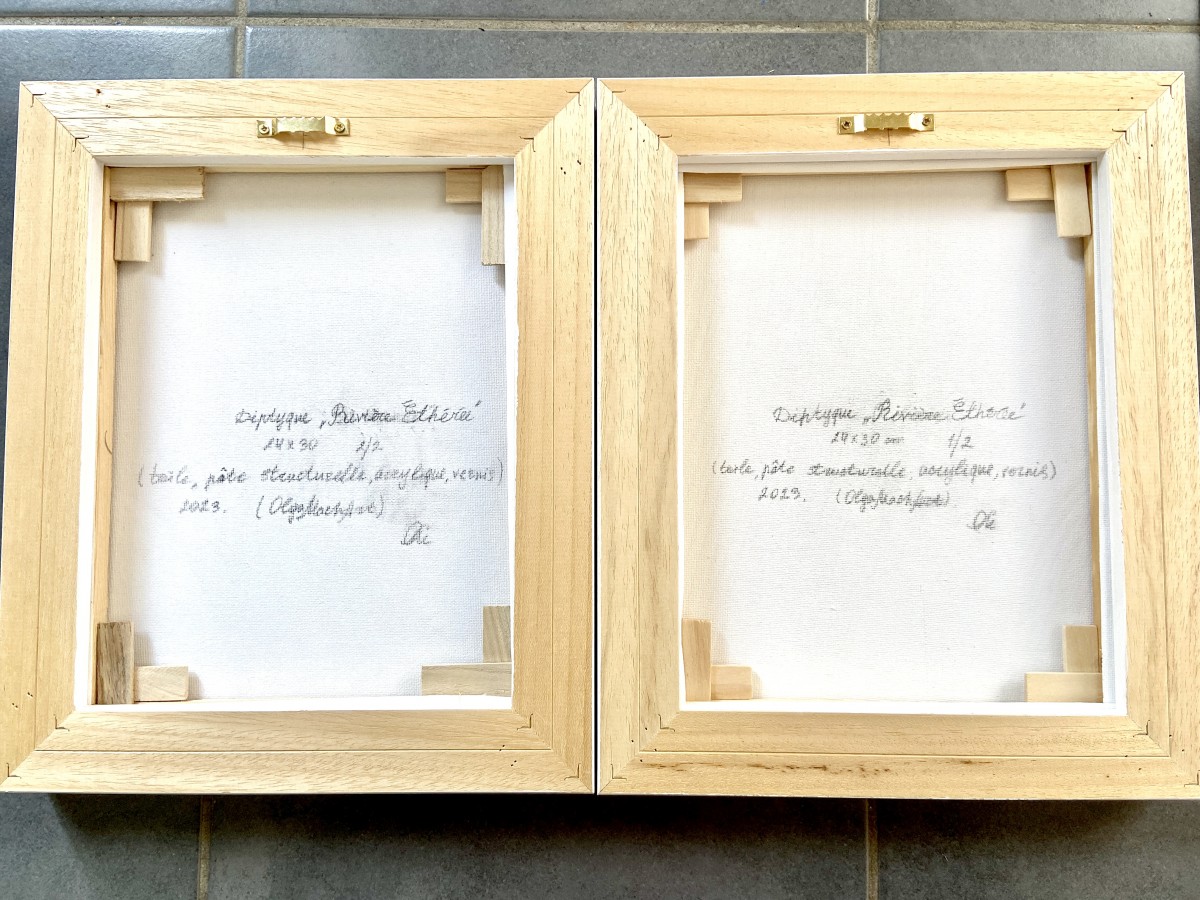 Diptyque „Rivière Éthérée"
24x30 2/2
(toile, pâte structurelle, acrylique, vernis)
2023.
Diptyque „Rivière Éthérée"
24x30 cm 1/2
(toile, pâte structurelle, acrylique, vernis)
2023.